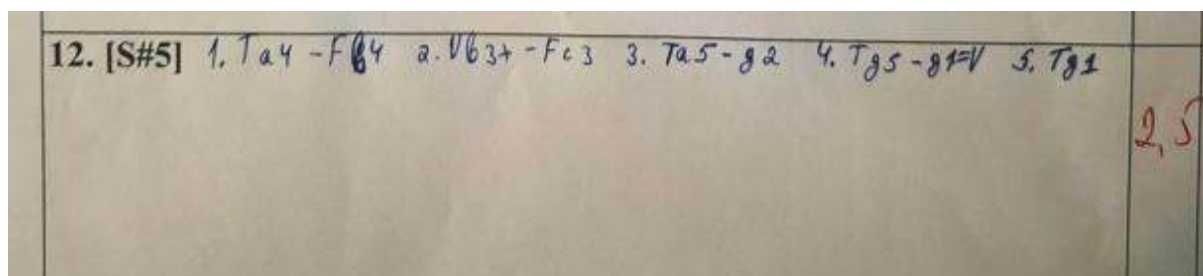 12. [S#5] 1. Ta4 - Fb4 2. Vb3+ - Fc3 3. Ta5 - g2 4. Tg5 - g1=V 5. Tg1
2,5